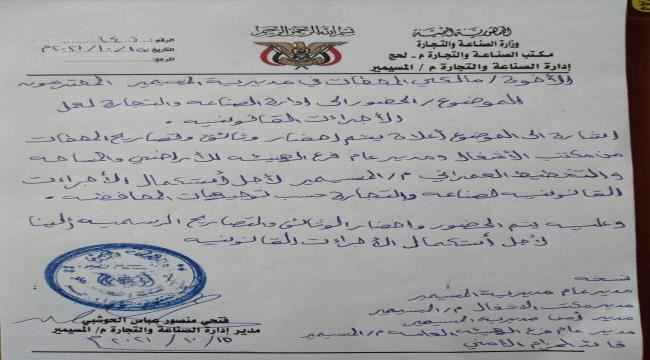 بسم الله الرحمن الرحيم
الجمهورية اليمنية
وزارة الصناعة والتجارة
مكتب الصناعة والتجارة م- لحج
إدارة الصناعة والتجارة م/ المسيمير
الرقم:
التاريخ: ١٥/١٠/٢٠٢١م
المرجع:
الأخوة / مالكي المحطات في مديرية المسيمير المحترمون
الموضوع / الحضور الى ادارة الصناعه والتجارة لعمل
الأجراءات القانونيه .
اشارة الى الموضوع أعلاه يتم احضار وثائق وتصاريح المحطات
من مكتب الأشغال ومدير عام فرع الهيئه للأراضي والمساحه
والتخطيط العمراني م/ المسيمير لأجل أستكمال الأجراءات
القانونيه للصناعه والتجارة حسب توجيهات المحافظه .
وعليه يتم الحضور واحضار الوثائق والتصاريح الرسميه إلينا
لأجل أستكمال الأجراءات القانونيه
نسخه
مدير عام مديرية المسيمير
مدير مكتب الاشغال م/ المسيمير
مدير أمن مديرية المسيمير
مدير عام فرع الهيئه العامه م/ المسيمير
قائد الحزام الأمني
فتحي منصور عباس الحوشبي
مدير إدارة الصناعة والتجارة م/ المسيمير
١٥/١٠/٢٠٢١م